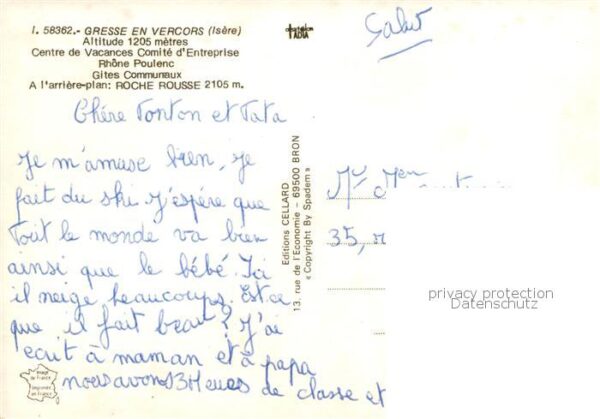 I. 58362.- GRESSE EN VERCORS (Isère)
Altitude 1205 mètres
Centre de Vacances Comité d'Entreprise
Rhône Poulenc
Gites Communaux
A l'arrière-plan: ROCHE ROUSSE 2105 m.
Chére Tonton et Tata
Je m'amuse bien, Je
fait du ski J'éspére que
Tout le monde va bien
ainsi que le bébé. Ici
il neige beaucoups. Est ce
que il fait beau? J'ai
ecrit à maman et à papa
nous avons 3 Heures de classe et
Image de France
Imprimée en France
Editions CELLARD
13, rue de l'Economie - 69500 BRON
« Copyright By Spadem »
Salut
35, r
privacy protection
Datenschutz